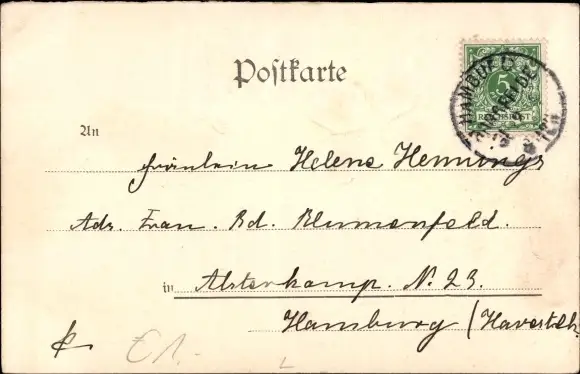 Postkarte
5
REICHSPOST
HAMBURG
An
Fräulein Helene Hennings
Adr. Frau. Bd. Blumenfeld.
in Alsterkamp. N. 23.
Hamburg / Harvesteh.
€1.-